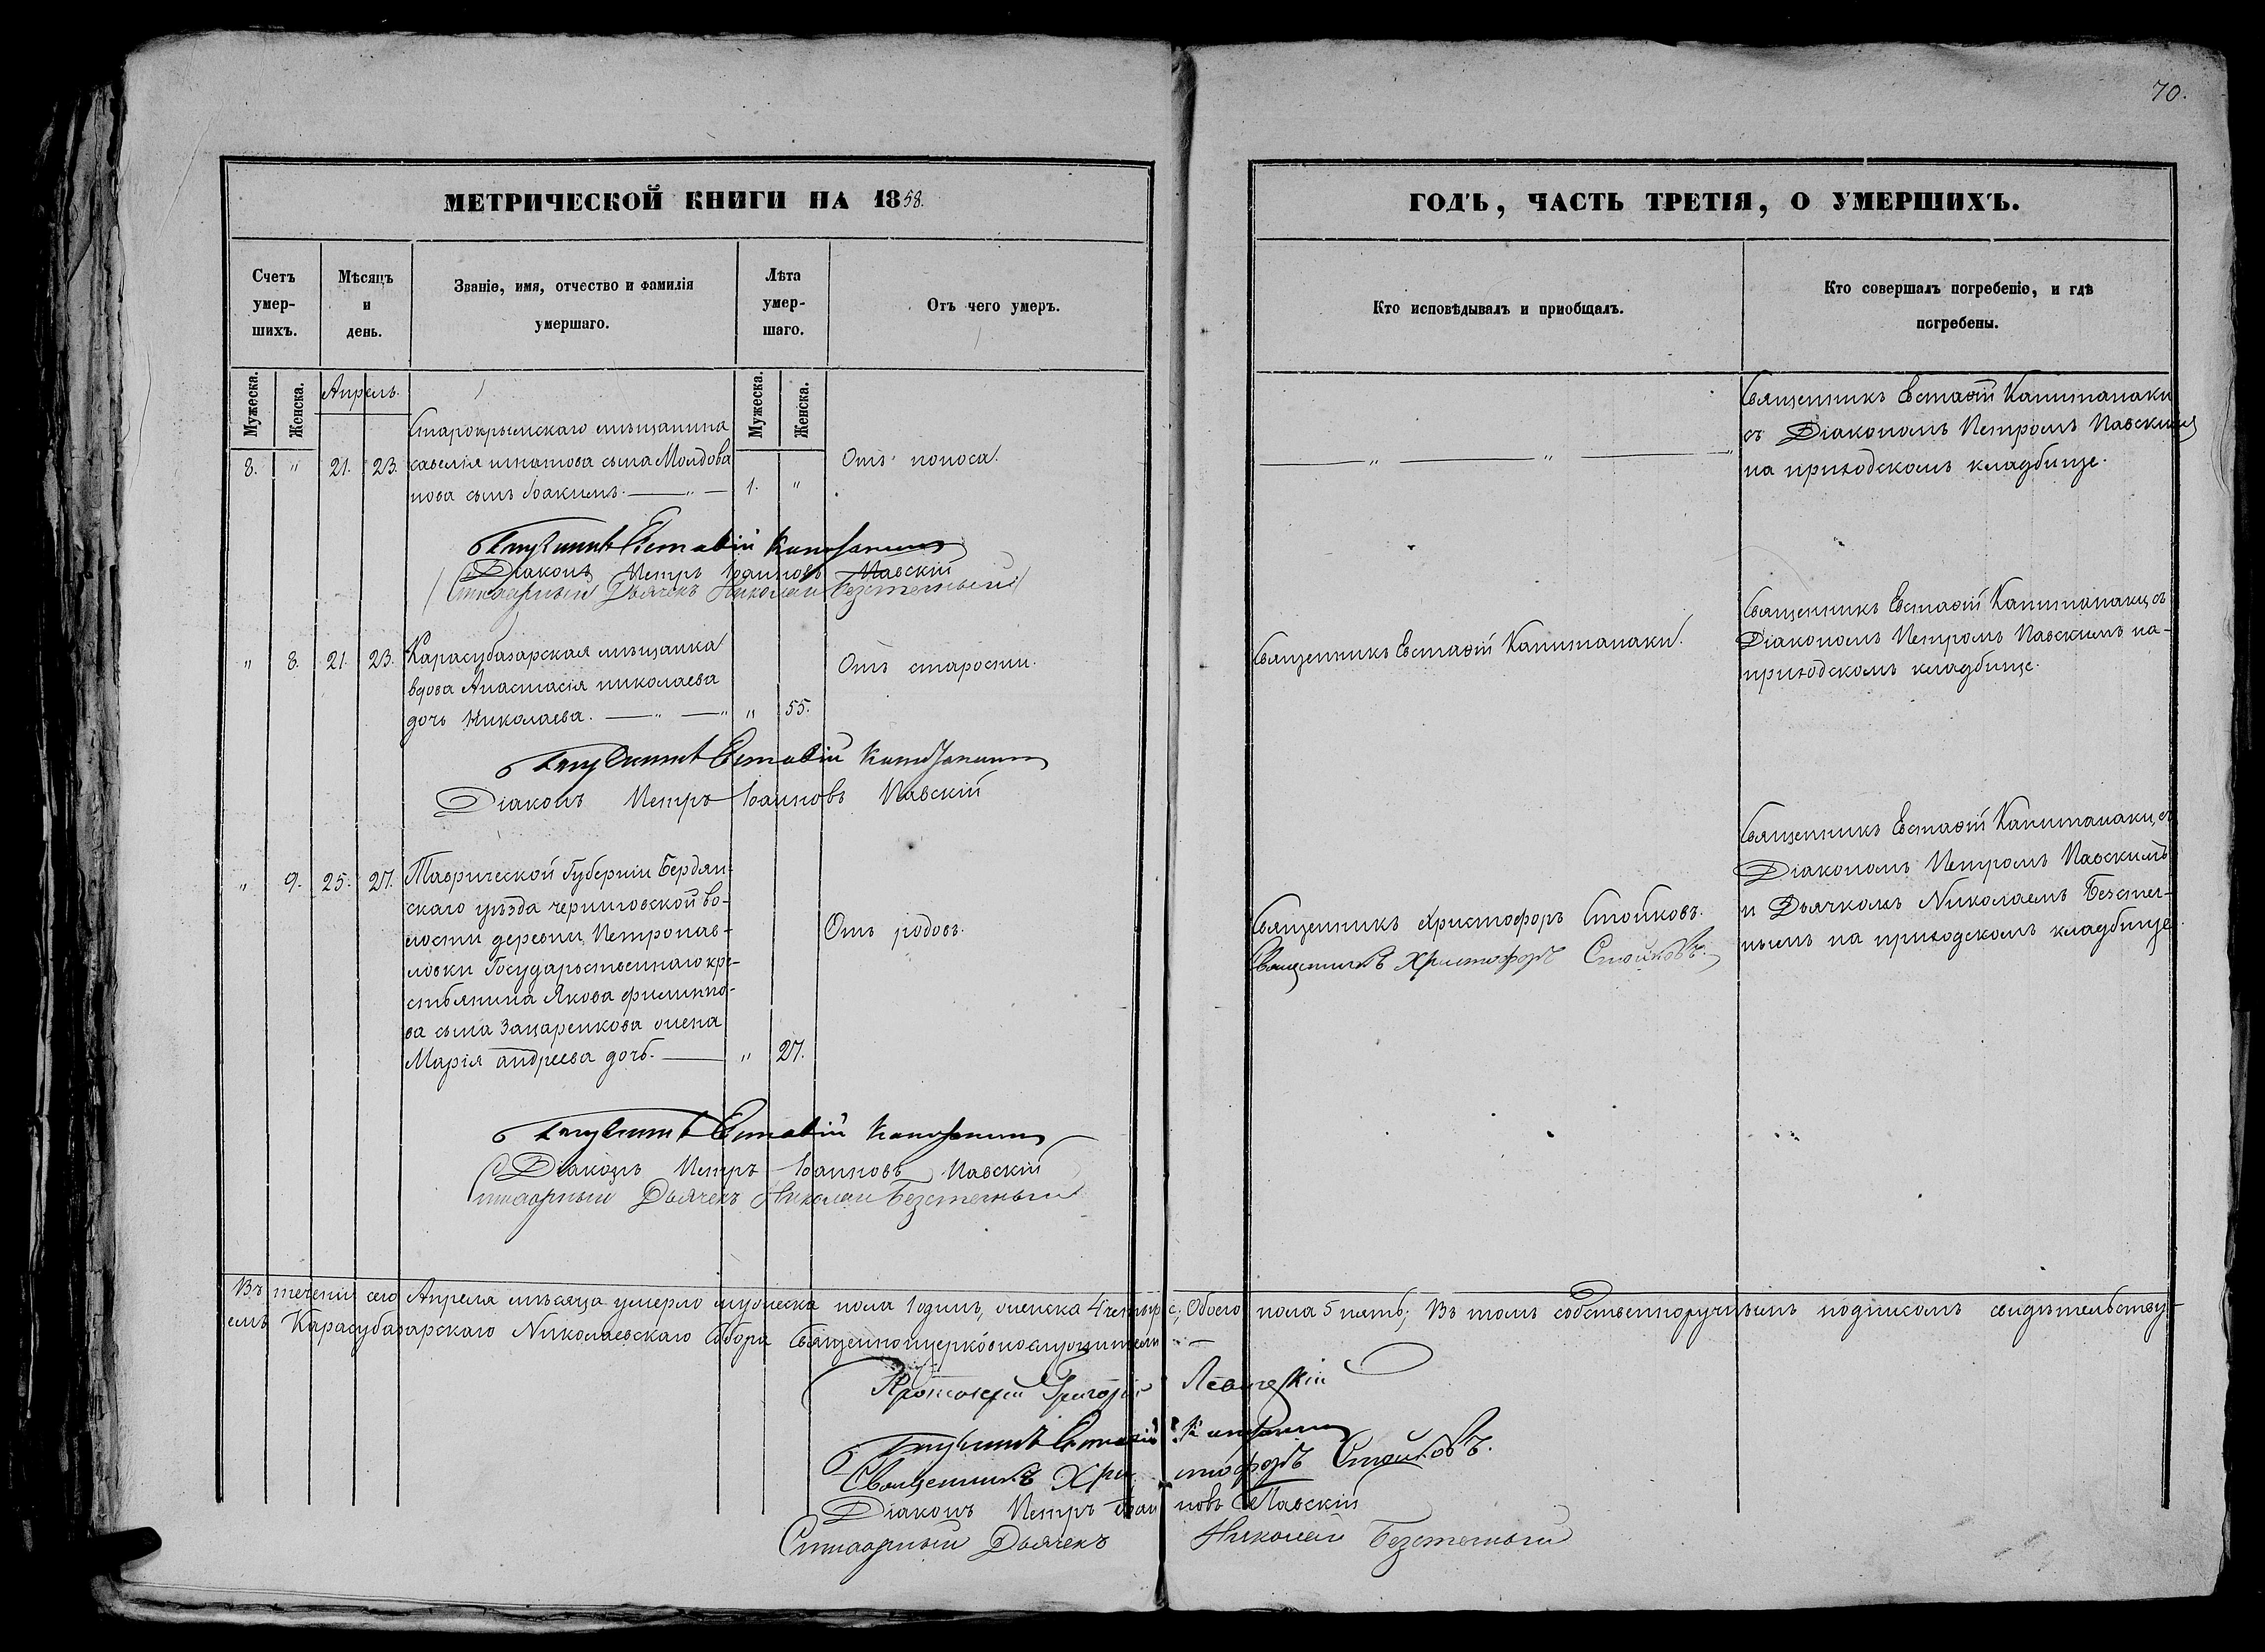 70.
МЕТРИЧЕСКОЙ КНИГИ НА 1858.
ГОДЪ, ЧАСТЬ ТРЕТІЯ, О УМЕРШИХЪ.
Счетъ умер-шихъ.
Мѣсяцъ и день.
Званіе, имя, отчество и фамилія умершаго.
Лѣта умер-шаго.
Отъ чего умеръ.
Кто исповѣдывалъ и пріобщалъ.
Кто совершалъ погребеніе, и гдѣ погребены.
Мужеска.
Женска.
Апрель.
Мужеска.
Женска.
8. " 21. 23.
Старокрымскаго мѣщанина
савелія игнатова сына Молдова
нова сынъ Іоакимъ.
1. "
Отъ поноса.
Священникъ Евстафій Капитанаки
съ Діакономъ Петромъ Павскимъ
на приходскомъ кладбище.
Священникъ Евстафій Капитанаки
Діаконъ Петръ Іоанновъ Павскій
Штатный Дьячекъ Николай Безстечный
" 8. 21. 23.
Карасубазарская мѣщанка
вдова Анастасія николаева
дочь Николаева.
" 55.
Отъ старости.
Священникъ Евстафій Капитанаки.
Священникъ Евстафій Капитанаки, съ
Діакономъ Петромъ Павскимъ на-
приходскомъ кладбище.
Священникъ Евстафій Капитанаки
Діаконъ Петръ Іоанновъ Павскій
" 9. 25. 27.
Таврической Губерніи Бердян-
скаго уѣзда черниговской во-
лости деревни Петропав-
ловки Государственнаго кре-
стьянина Якова филипо-
ва сына Захаренкова жена
Марія андреева дочь.
" 27.
Отъ родовъ.
Священникъ христофоръ Стойковъ.
Священникъ Христофоръ Стойковъ.
Священникъ Евстафій Капитанаки, съ
Діакономъ Петромъ Павскимъ
и Дьячкомъ Николаемъ Безстеч-
нымъ на приходскомъ кладбище
Священникъ Евстафій Капитанаки
Діаконъ Петръ Іоанновъ Павскій
Дьячекъ Николай Безстечный
Въ теченіи сего Апреля мѣсяца умерло мужеска пола 1 одинъ, женска 4 четыре, Обоего пола 5 пять; Въ томъ собственноручнымъ подписомъ свидѣтельству-
емъ Карасубазарскаго Николаевскаго Собора Священноцерковнослужители
Протоіерей Григорій
Священникъ Евстафій Капитанаки
Священникъ Христофоръ Стойковъ.
Діаконъ Петръ Іоанновъ Павскій
Дьячекъ Николай Безстечный